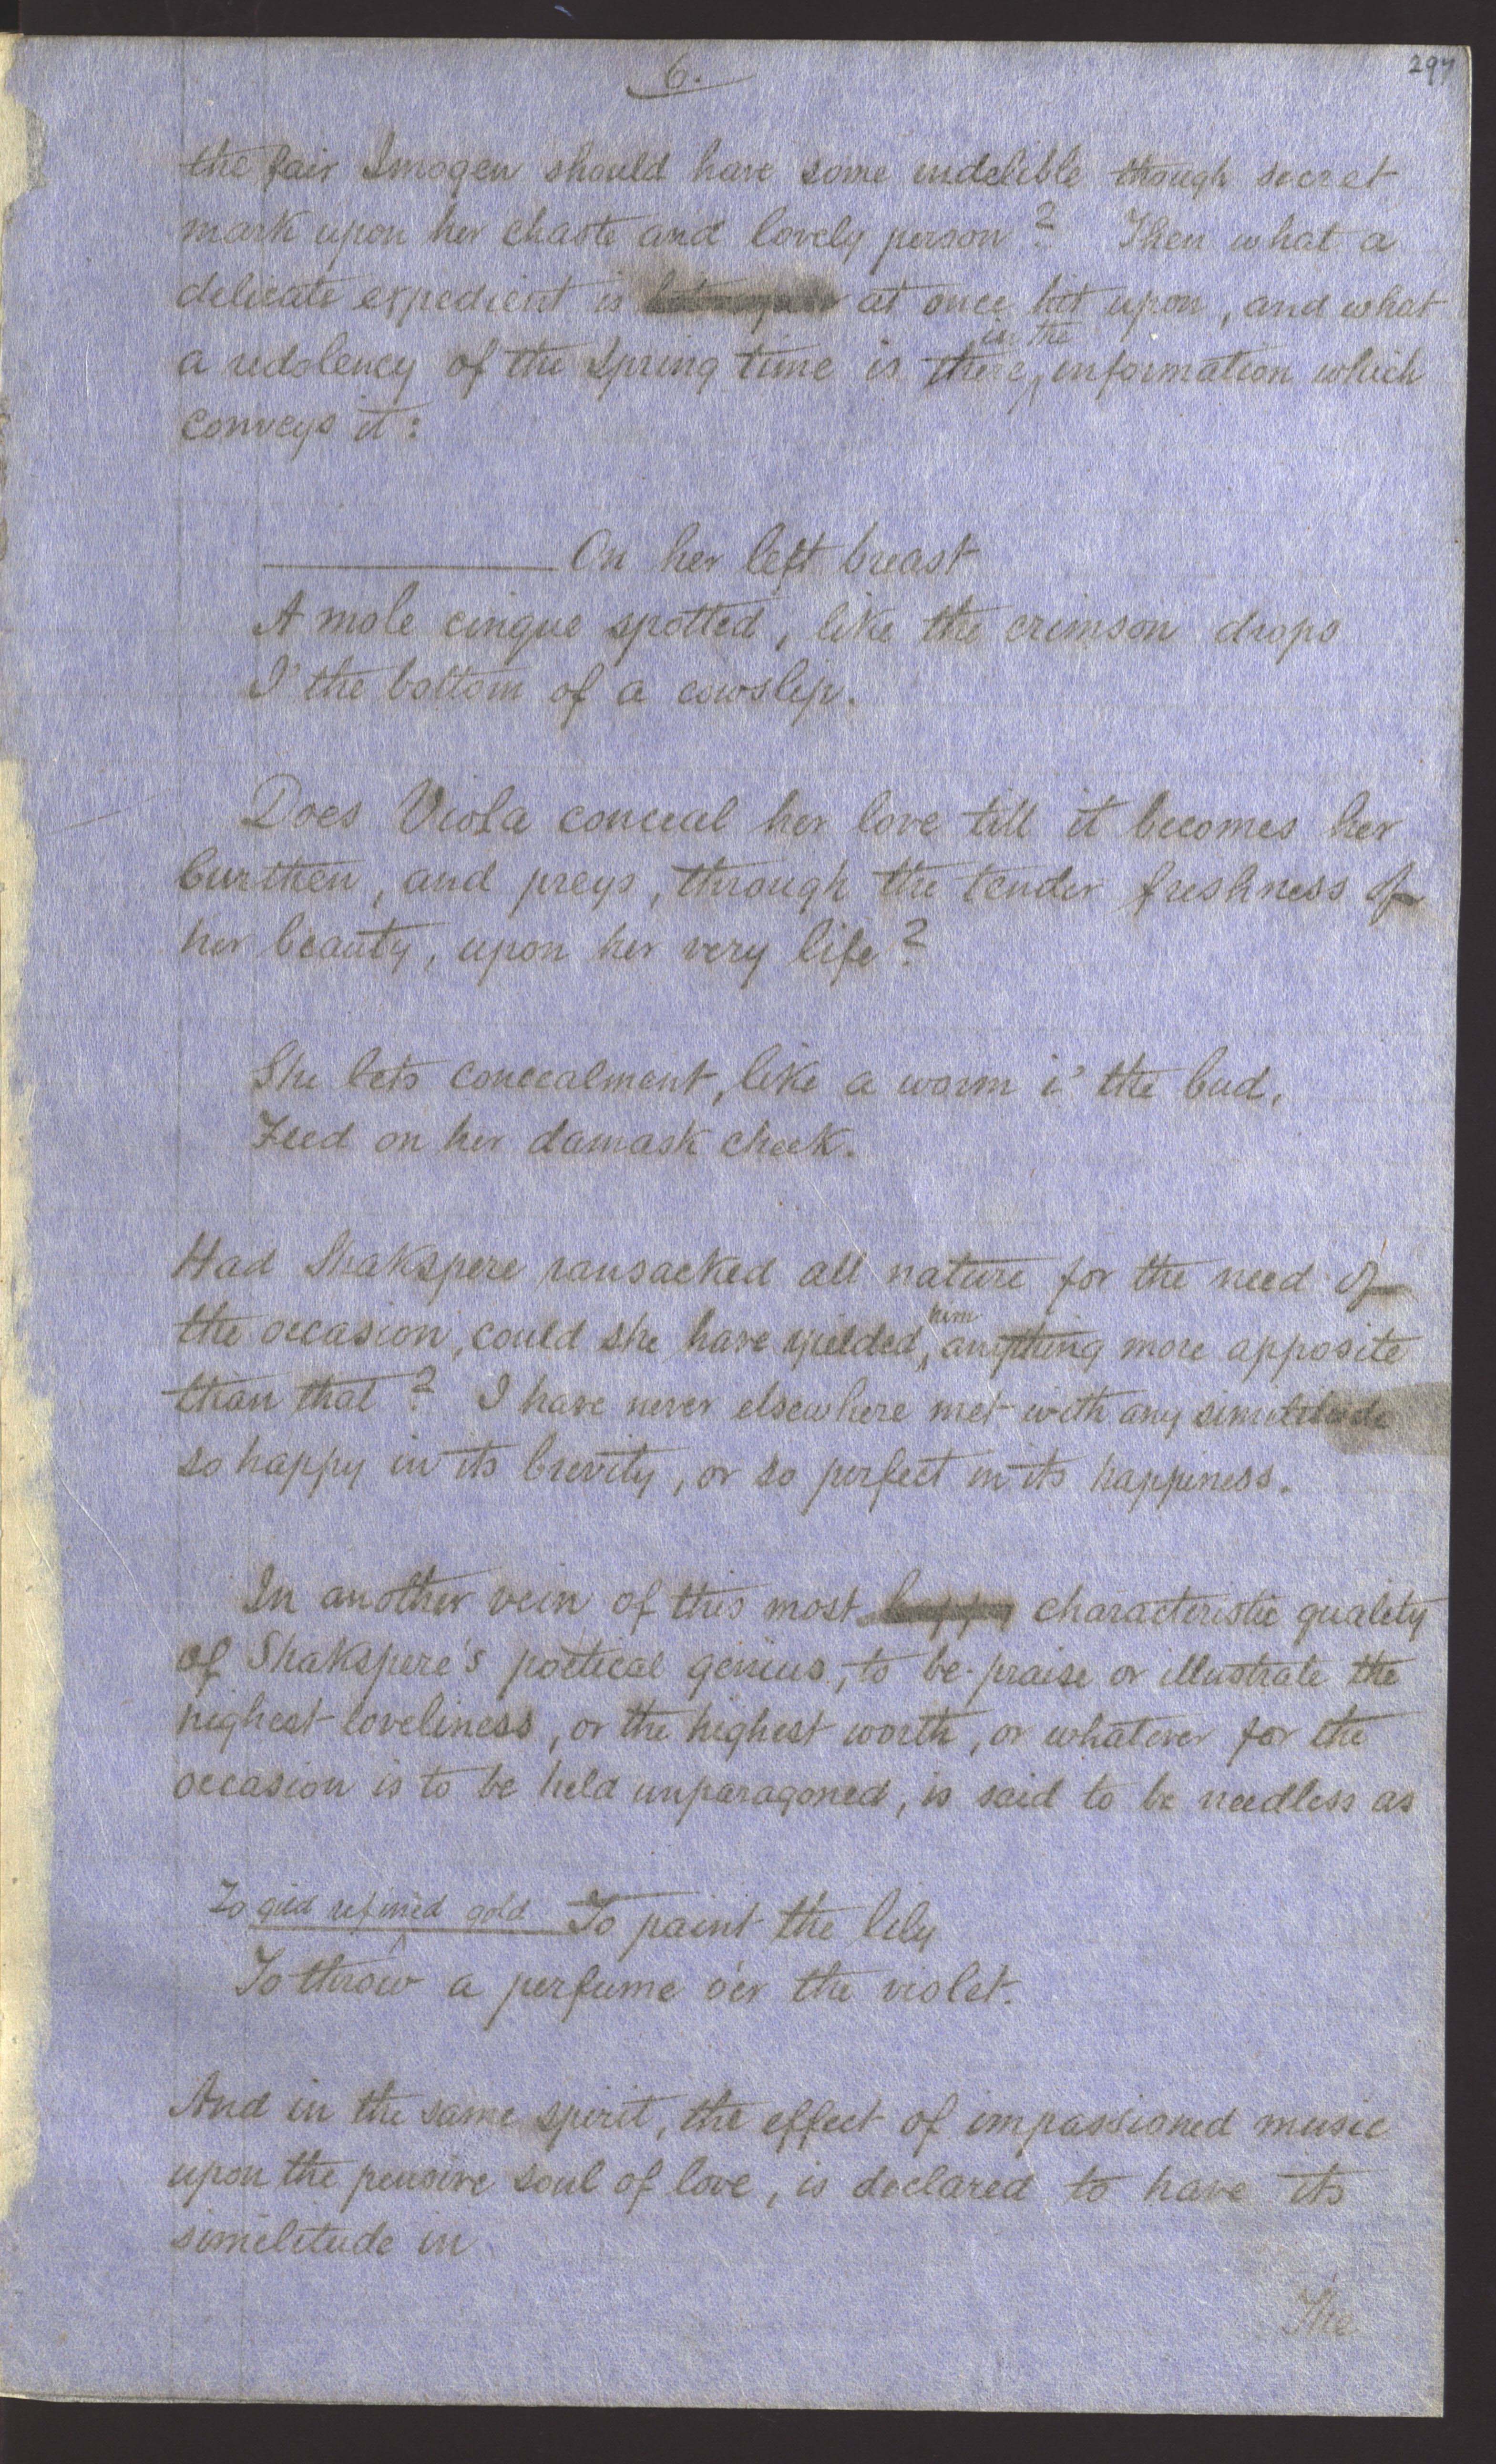 6.
297
the fair Imogen should have some indelible though secret
mark upon her chaste and lovely person? Then what a
delicate expedient is at once hit upon, and what
a redolency of the Spring time is there, in the information which
conveys it:
On her left breast
A mole cinque spotted, like the crimson drops
I' the bottom of a cowslip.
Does Viola conceal her love till it becomes her
burthen, and preys, through the tender freshness of
her beauty, upon her very life?
She lets concealment, like a worm i' the bud,
Feed on her damask cheek.
Had Shakspere ransacked all nature for the need of
the occasion, could she have yielded him anything more apposite
than that? I have never elsewhere met with any similitude
so happy in its brevity, or so perfect in its happiness.
In another vein of this most happy characteristic quality
of Shakspere's poetical genius, to be-praise or illustrate the
highest loveliness, or the highest worth, or whatever for the
occasion is to be held unparagoned, is said to be needless as
To gild refined gold To paint the lily
To throw a perfume o'er the violet.
And in the same spirit, the effect of impassioned music
upon the pensive soul of love, is declared to have its
similitude in
The